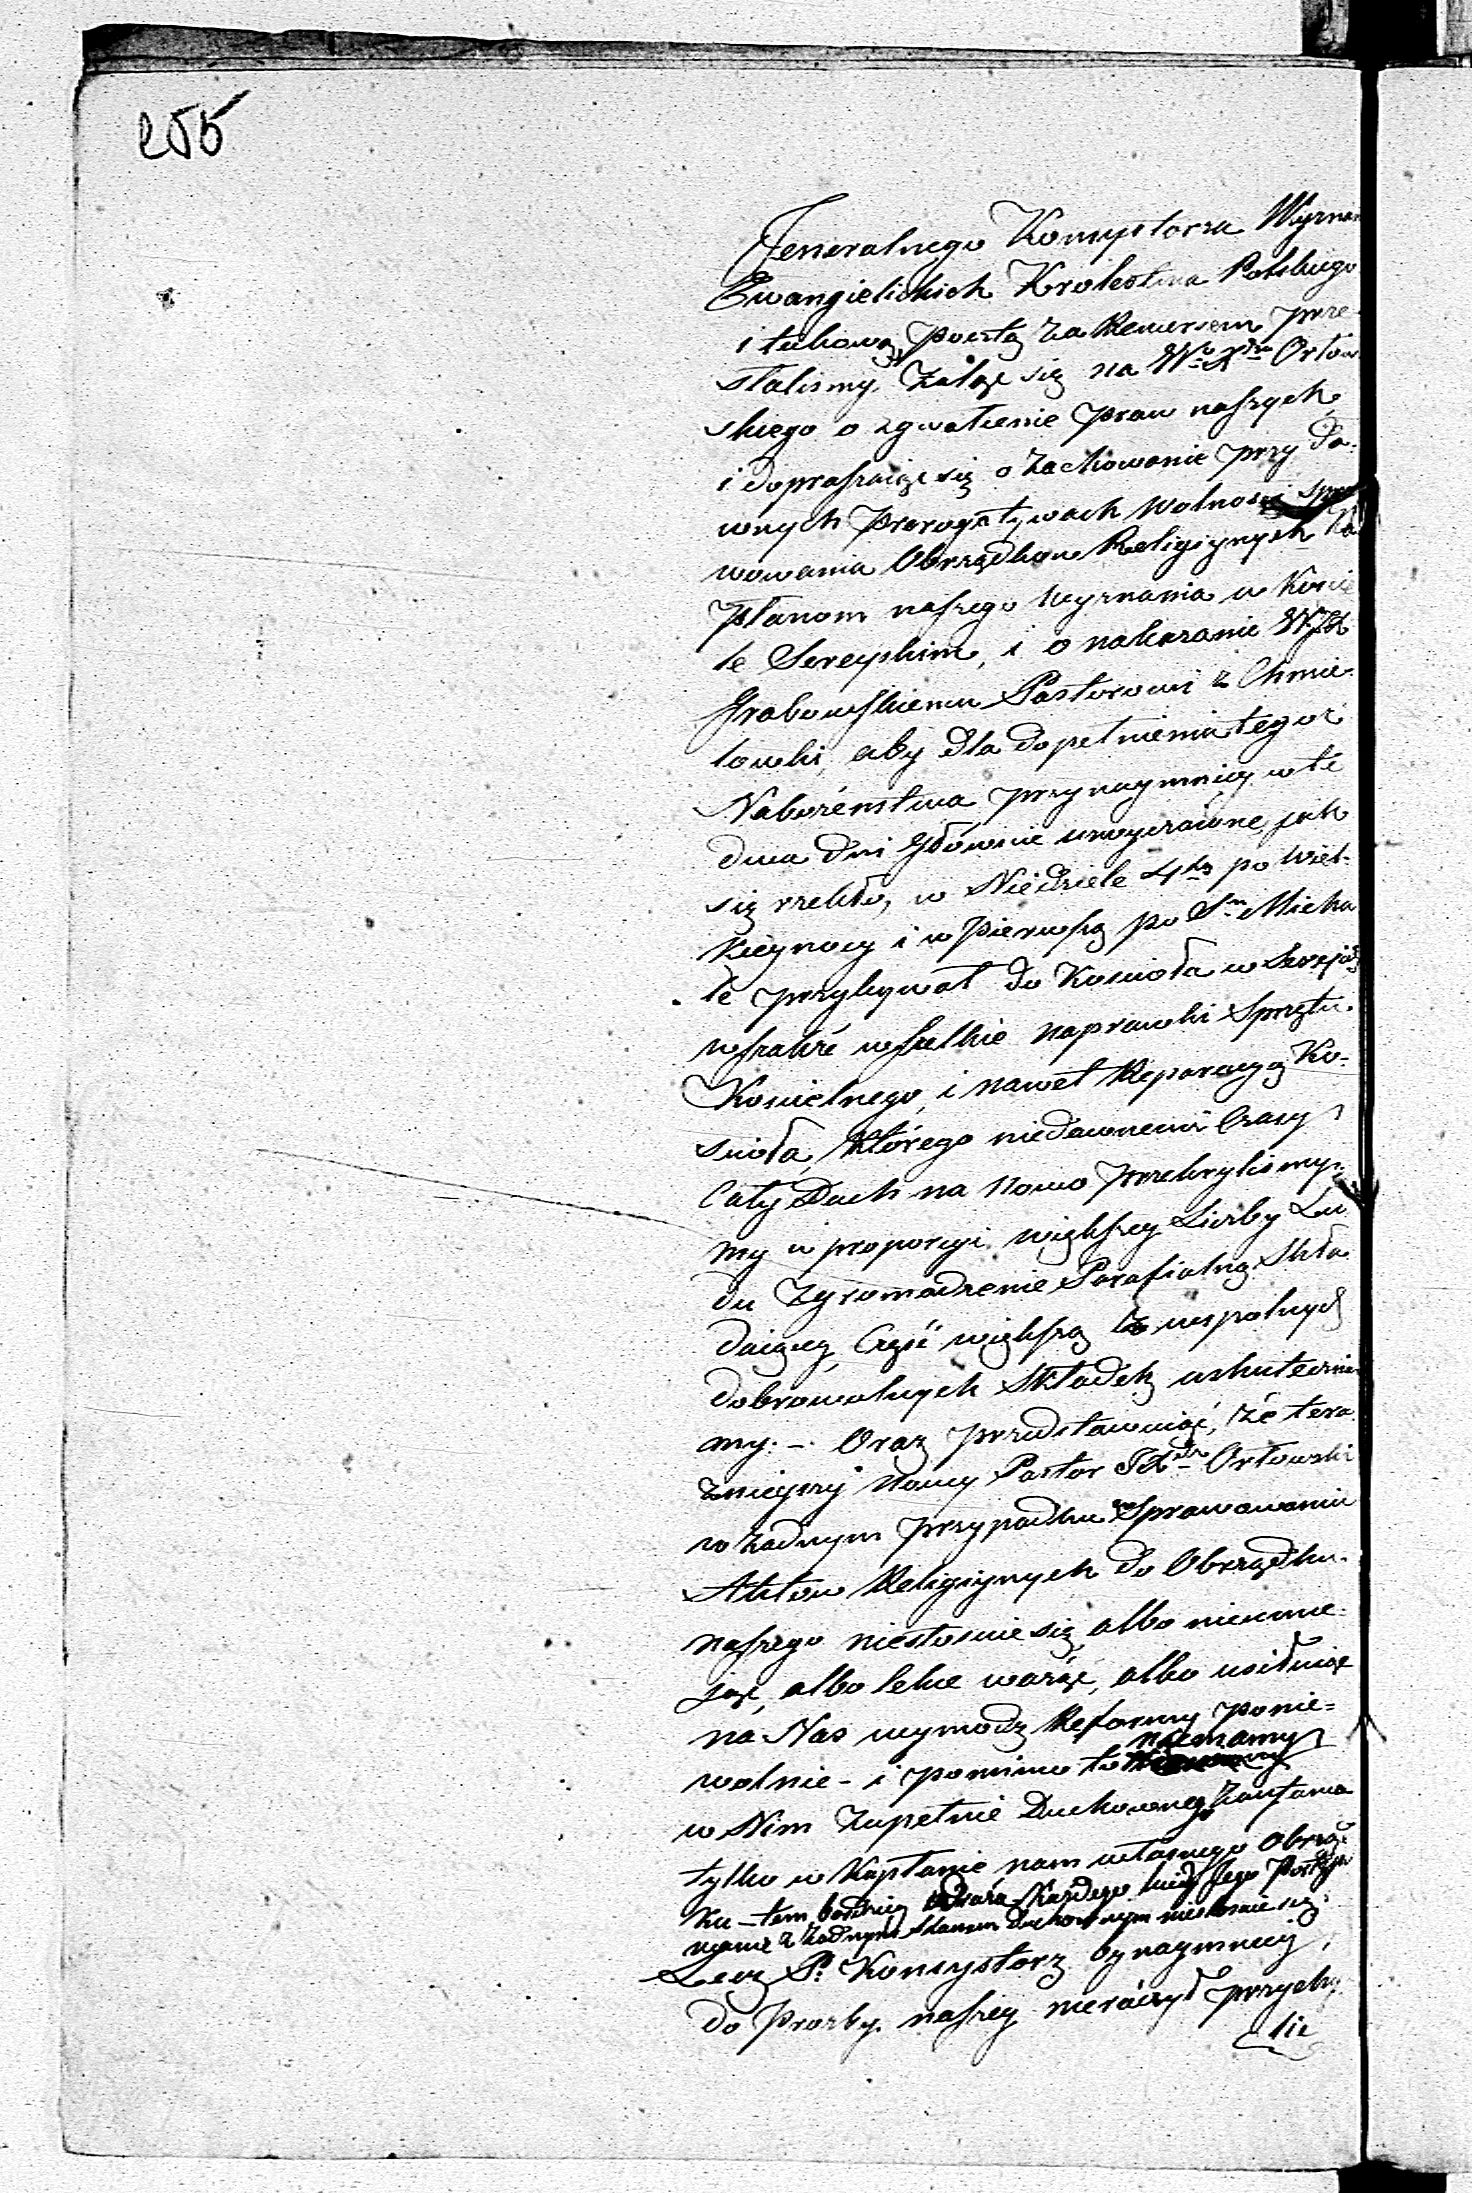 255
Jeneralnego Konsystorza Wyznań
Ewangielickich Krolestwa Polskiego
i takową pocztą za Rewersem prze-
słalismy. Żaląc się na Wo Xdza Orłow
skiego o zgwałcenie praw naszych,
i dopraszaiąc się o zachowanie przy da-
wnych prerogatywach wolności spra
wowania Obrządkow Religiynych Ka
płanom naszego wyznania w Koście
le Sereyskim, i o nakazanie WJX
Grabowskiemu Pastorowi z Chmie-
lowki, aby dla dopełnienia tegoż
Nabożeństwa przynaymniey w te
dwa dni głównie uroczyste jak
się rzekło, w Niedziele 4tą po Wiel-
kieynocy i w pierwszą po Sm Micha
le przybywał do Kościoła w Sereiach
wszakże wszelkie naprawki Sprzętu
Kościelnego, i nawet Reparacyą Ko-
scioła, którego niedawnemi Czasy
cały Dach na nowo przekrylismy,
my w proporcyi większey Liczby Lu
du Zgromadzenie Parafialne Skła
daiący, Część większą z wspolnych
dobrowolnych Składek uskutecznia
my. – Oraz przedstawuiąc, że tera
znieyszy nowy Pastor JXdz Orłowski
w żadnym przypadku w Sprawowaniu
Aktow Religiynych do Obrządku
naszego niestosuie się albo nieumie-
jąc, albo lekce ważąc, albo usiłuiąc
na Nas wymodz Reformy ponie-
wolnie – i pomimo to niemamy
w Nim zupełnie Duchownego Zaufania
tylko w Kapłanie nam własnego Obrząd
ku – tem bardziey odraża Każdego Jego Postępo
wanie z żadnym stanem duchownym niestosuie się.
Lecz P. Konsystorz bynaymniey
do Prozby naszey nieraczył przychy
lić